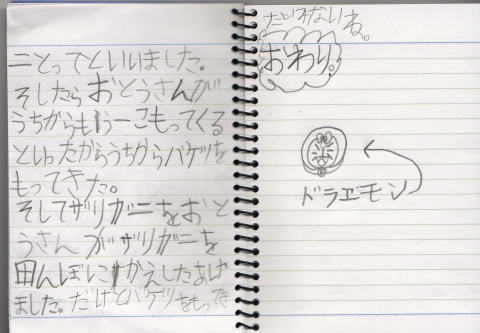 ことってといいました。
そしたらおとうさんが
うちからもう一こもってくる
といったからうちからバケツを
もってきた。
そしてザリガニをおと
うさんがザリガニを
田んぼにかえしてあげ
ました。だけどバケツをもってき
たいみないね。
おわり。
ドラエモン